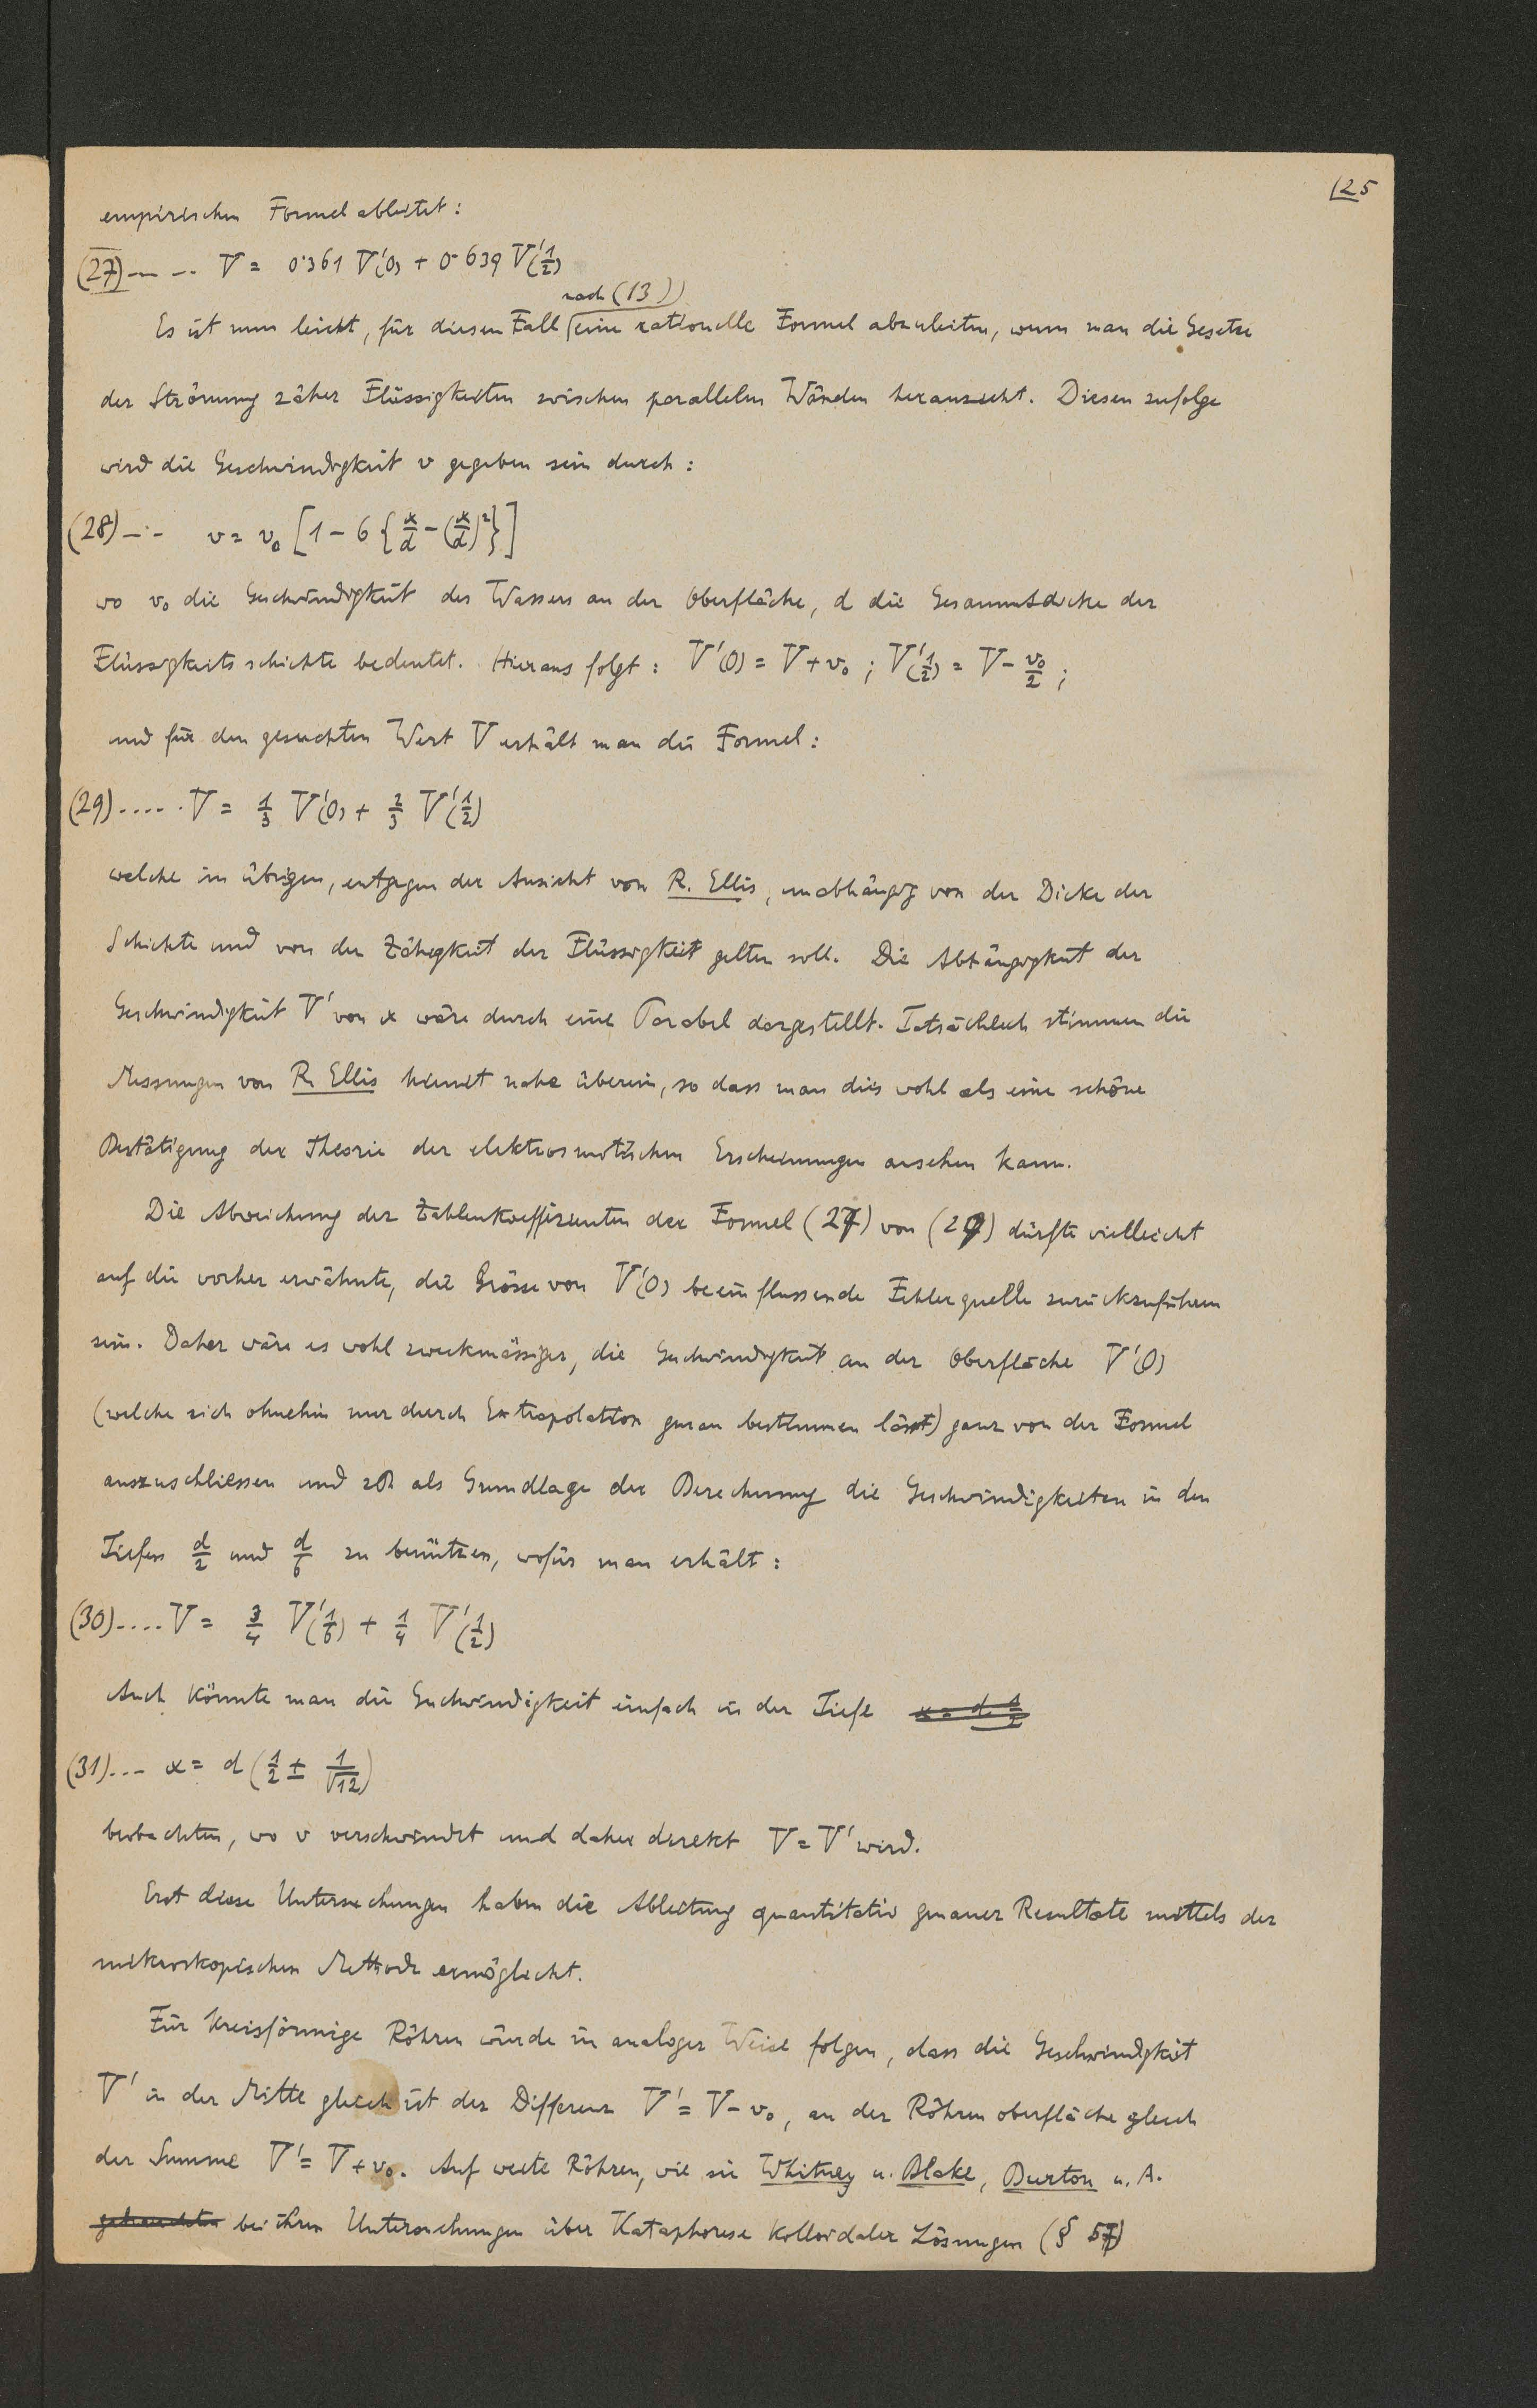 125
empirischen Formel ableitet:
(27) — -- V = 0·361 V'(0) + 0·639 V'(1/2)
nach (13)
Es ist nun leicht, für diesen Fall eine rationelle Formel abzuleiten, wenn man die Gesetze
der Strömung zäher Flüssigkeiten zwischen parallelen Wänden heranzieht. Diesen zufolge
wird die Geschwindigkeit v gegeben sein durch:
(28) —·- v = v₀ [1 - 6 {x/d - (x/d)²}]
wo v₀ die Geschwindigkeit des Wassers an der Oberfläche, d die Gesammtdicke der
Flüssigkeitsschichte bedeutet. Hieraus folgt: V'(0) = V + v₀ ; V'(1/2) = V - v₀/2 ;
und für den gesuchten Wert V erhält man die Formel:
(29) ····· V = 1/3 V'(0) + 2/3 V'(1/2)
welche im übrigen, entgegen der Ansicht von R. Ellis, unabhängig von der Dicke der
Schichte und von der Zähigkeit der Flüssigkeit gelten soll. Die Abhängigkeit der
Geschwindigkeit V' von x wäre durch eine Parabel dargestellt. Tatsächlich stimmen die
Messungen von R. Ellis hiemit nahe überein, so dass man dies wohl als eine schöne
Bestätigung der Theorie der elektrosmotischen Erscheinungen ansehen kann.
Die Abweichung der Zahlenkoeffizienten der Formel (27) von (29) dürfte vielleicht
auf die vorher erwähnte, die Grösse von V'(0) beeinflussende Fehlerquelle zurückzuführen
sein. Daher wäre es wohl zweckmässiger, die Geschwindigkeit an der Oberfläche V'(0)
(welche sich ohnehin nur durch Extrapolation genau bestimmen lässt) ganz von der Formel
auszuschliessen und als Grundlage der Berechnung die Geschwindigkeiten in den
Tiefen d/2 und d/6 zu benützen, wofür man erhält:
(30) ···· V = 3/4 V'(1/6) + 1/4 V'(1/2)
Auch könnte man die Geschwindigkeit einfach in der Tiefe
(31) ··· x = d (1/2 ± 1/√12)
beobachten, wo v verschwindet und daher direkt V = V' wird.
Erst diese Untersuchungen haben die Ableitung quantitativ genauer Resultate mittels der
mikroskopischen Methode ermöglicht.
Für kreisförmige Röhren würde in analoger Weise folgen, dass die Geschwindigkeit
V' in der Mitte gleich ist der Differenz V' = V - v₀, an der Röhrenoberfläche gleich
der Summe V' = V + v₀. Auf weite Röhren, wie sie Whitney u. Blake, Burton u. A.
gebrauchten bei ihren Untersuchungen über Kataphorese kolloidaler Lösungen (§ 57)